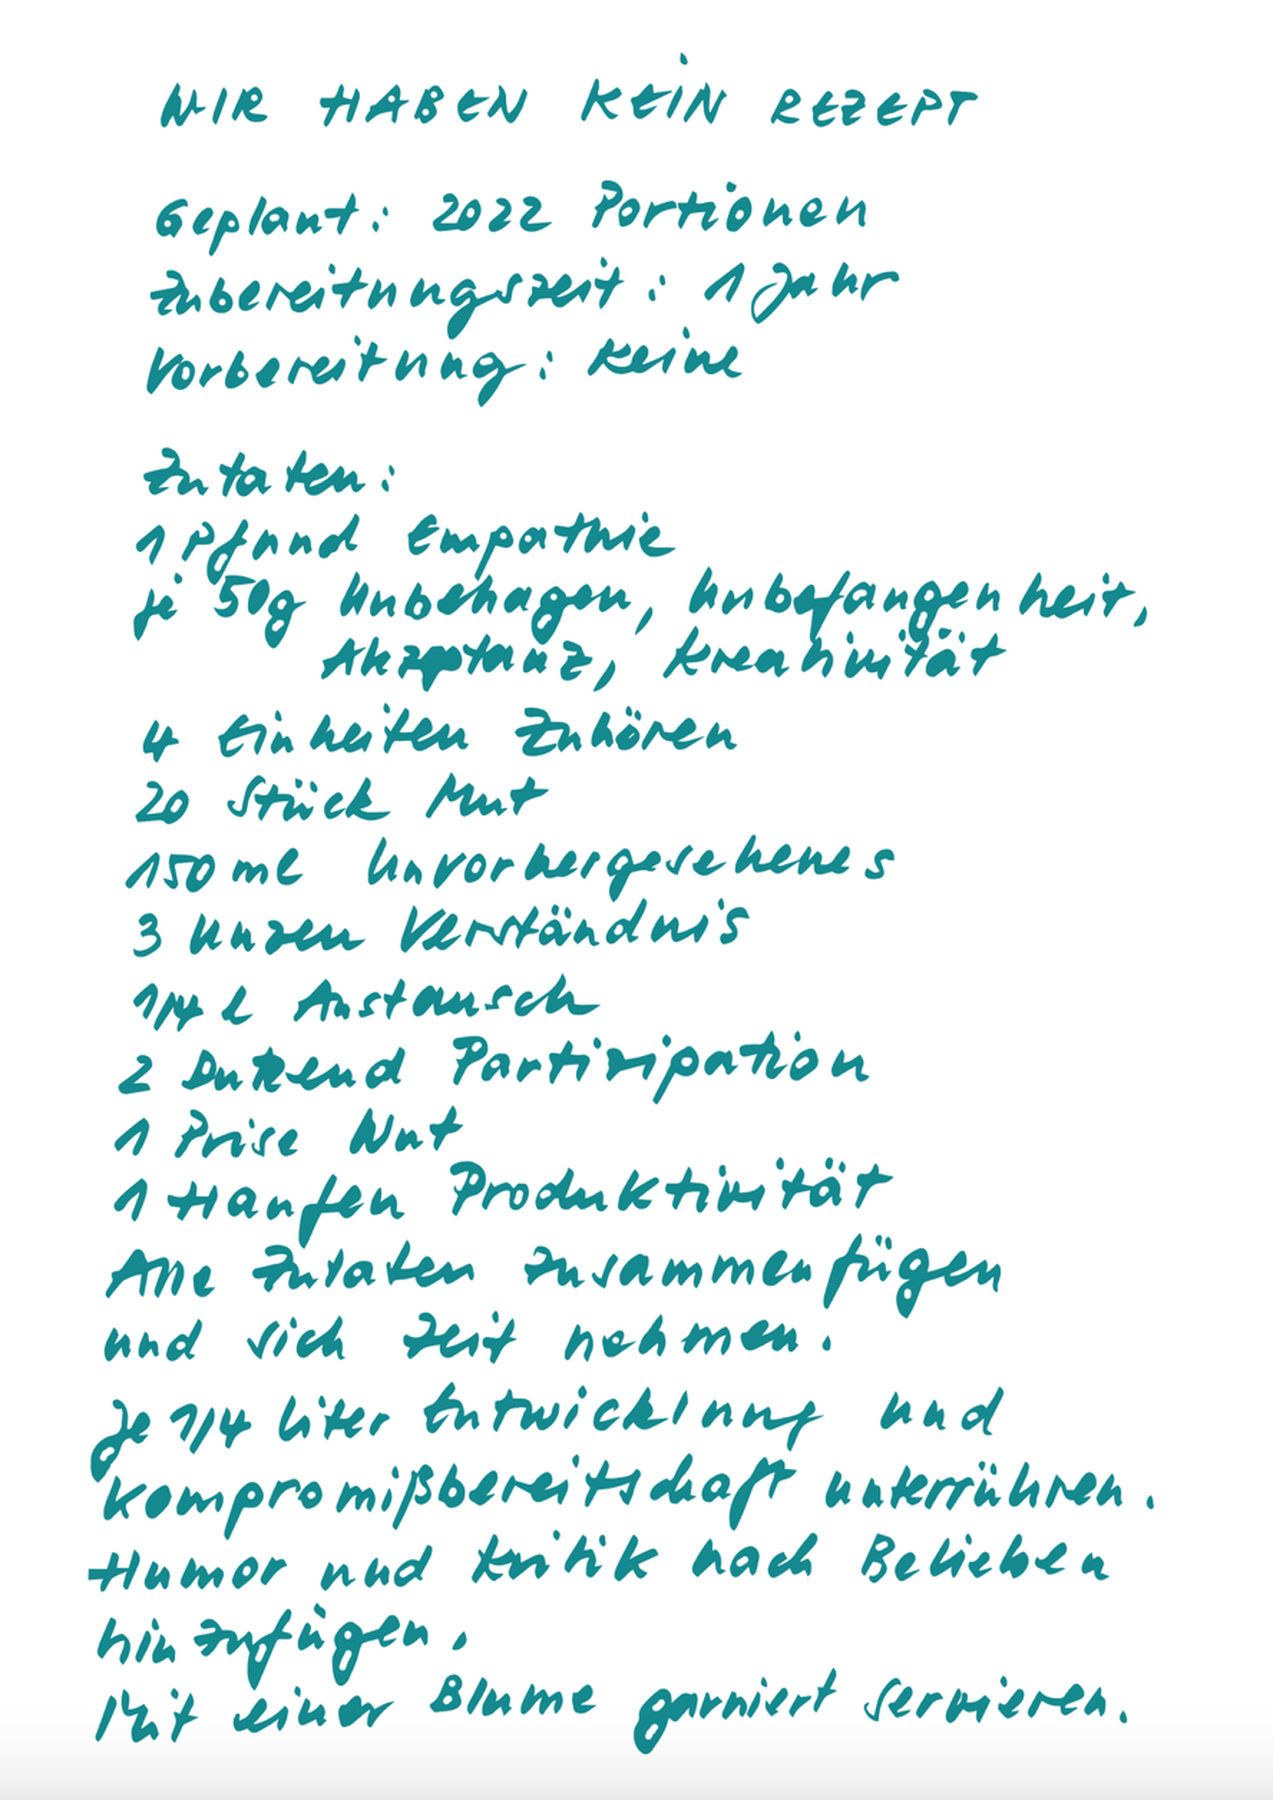 WIR HABEN KEIN REZEPT
Geplant: 2022 Portionen
Zubereitungszeit: 1 Jahr
Vorbereitung: Keine
Zutaten:
1 Pfund Empathie
je 50g Unbehagen, Unbefangenheit,
Akzeptanz, Kreativität
4 Einheiten Zuhören
20 Stück Mut
150 ml Unvorhergesehenes
3 Unzen Verständnis
1/4 l Austausch
2 Dutzend Partizipation
1 Prise Wut
1 Haufen Produktivität
Alle Zutaten zusammenfügen
und sich Zeit nehmen.
Je 1/4 Liter Entwicklung und
Kompromißbereitschaft unterrühren.
Humor und Kritik nach Belieben
hinzufügen.
Mit einer Blume garniert servieren.